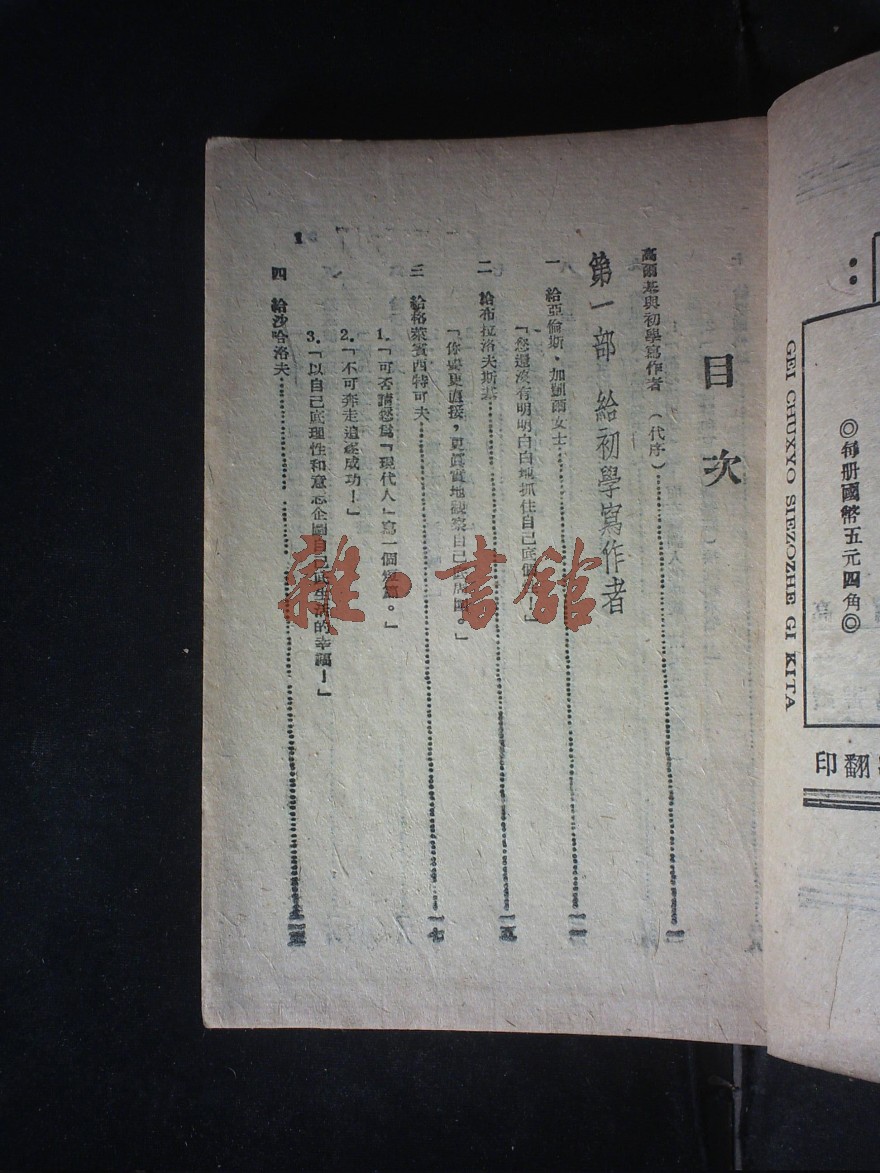 目次
高爾基與初學寫作者 (代序)…………一
第一部 給初學寫作者
一 給亞倫斯·加凱爾女士…………
「您還沒有明明白白地抓住自己底個性!」
二 給布拉洛夫斯基…………一五
「你要更直接,更眞實地觀察自己底周圍。」
三 給格萊賓西特可夫…………一七
1.「可否請您爲「現代人」寫一個短篇。」
2.「不可奔走追逐成功!」
3.「以自己底理性和意志企圖自己底生活的幸福!」
四 給沙哈洛夫…………
1
雜·書館
GEI CHUXYO SIEZOZHE GI KITA
◎每册國幣五元四角◎
翻印